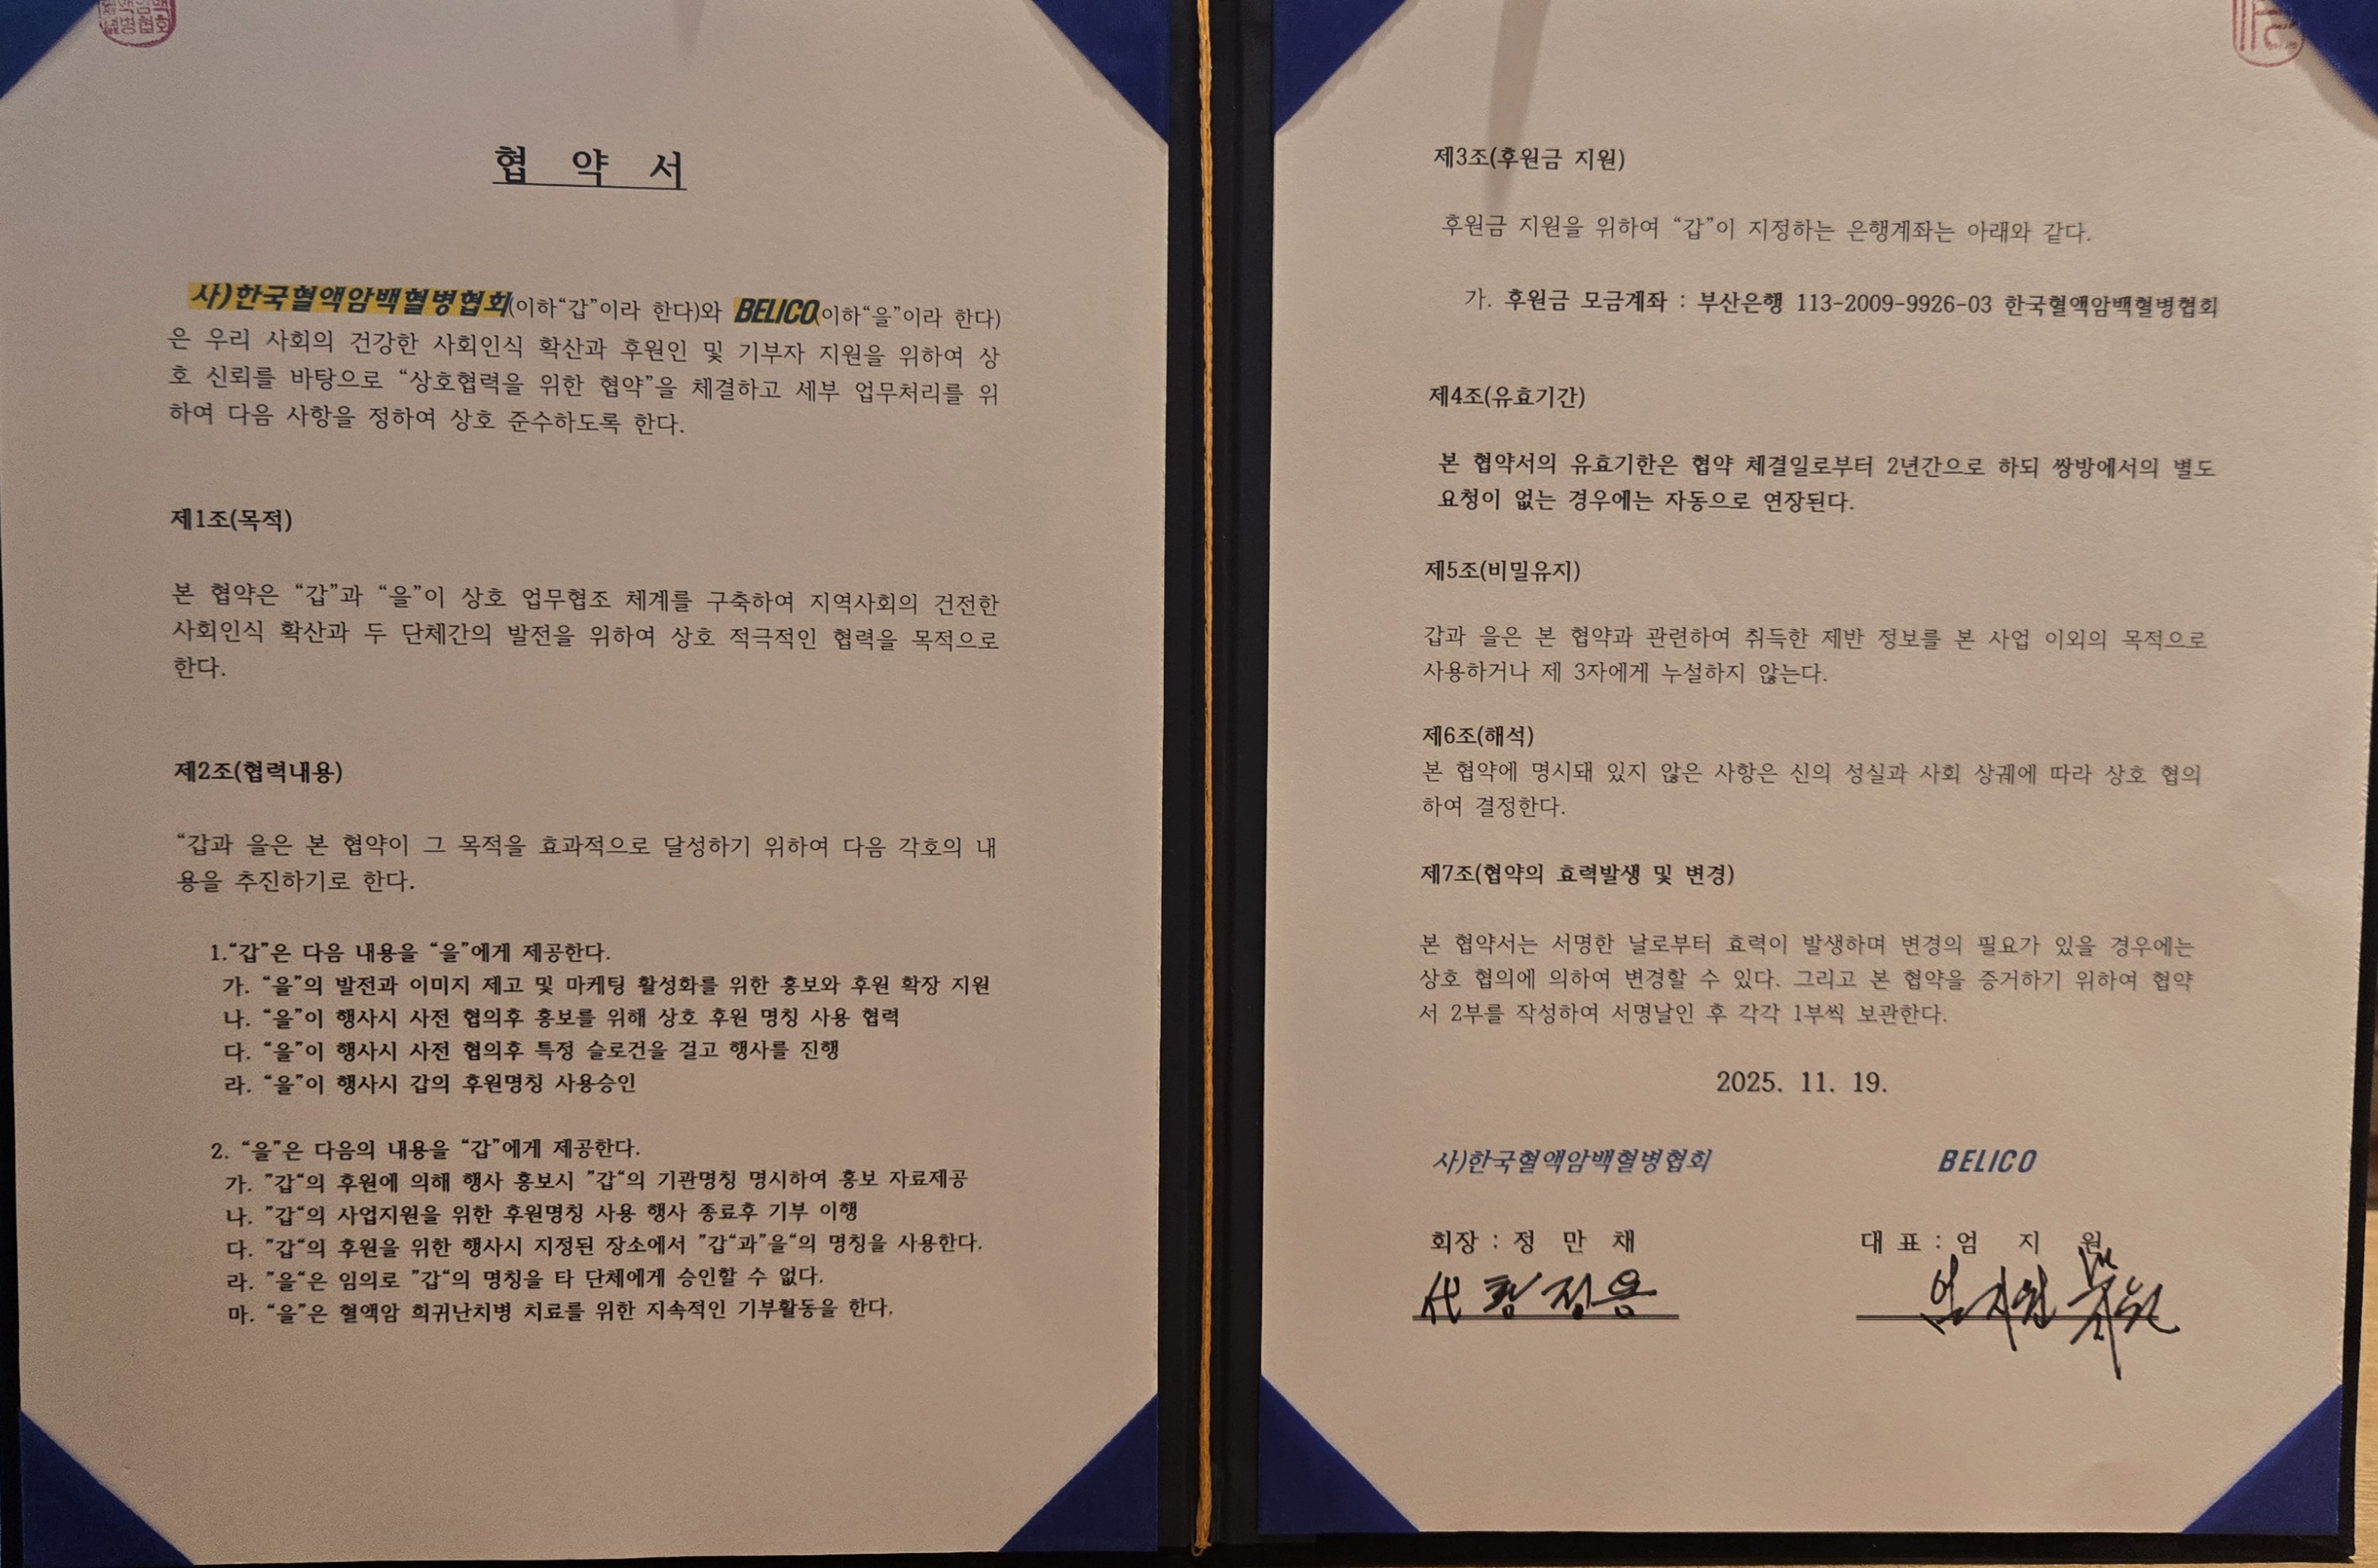 협 약 서
사)한국혈액암백혈병협회(이하“갑”이라 한다)와 BELICO(이하“을”이라 한다)
은 우리 사회의 건강한 사회인식 확산과 후원인 및 기부자 지원을 위하여 상
호 신뢰를 바탕으로 “상호협력을 위한 협약”을 체결하고 세부 업무처리를 위
하여 다음 사항을 정하여 상호 준수하도록 한다.
제1조(목적)
본 협약은 “갑”과 “을”이 상호 업무협조 체계를 구축하여 지역사회의 건전한
사회인식 확산과 두 단체간의 발전을 위하여 상호 적극적인 협력을 목적으로
한다.
제2조(협력내용)
“갑과 을은 본 협약이 그 목적을 효과적으로 달성하기 위하여 다음 각호의 내
용을 추진하기로 한다.
1.“갑”은 다음 내용을 “을”에게 제공한다.
가. “을”의 발전과 이미지 제고 및 마케팅 활성화를 위한 홍보와 후원 확장 지원
나. “을”이 행사시 사전 협의후 홍보를 위해 상호 후원 명칭 사용 협력
다. “을”이 행사시 사전 협의후 특정 슬로건을 걸고 행사를 진행
라. “을”이 행사시 갑의 후원명칭 사용승인
2. “을”은 다음의 내용을 “갑”에게 제공한다.
가. ”갑“의 후원에 의해 행사 홍보시 ”갑“의 기관명칭 명시하여 홍보 자료제공
나. ”갑“의 사업지원을 위한 후원명칭 사용 행사 종료후 기부 이행
다. ”갑“의 후원을 위한 행사시 지정된 장소에서 ”갑“과”을“의 명칭을 사용한다.
라. ”을“은 임의로 ”갑“의 명칭을 타 단체에게 승인할 수 없다.
마. “을”은 혈액암 희귀난치병 치료를 위한 지속적인 기부활동을 한다.
제3조(후원금 지원)
후원금 지원을 위하여 “갑”이 지정하는 은행계좌는 아래와 같다.
가. 후원금 모금계좌 : 부산은행 113-2009-9926-03 한국혈액암백혈병협회
제4조(유효기간)
본 협약서의 유효기한은 협약 체결일로부터 2년간으로 하되 쌍방에서의 별도
요청이 없는 경우에는 자동으로 연장된다.
제5조(비밀유지)
갑과 을은 본 협약과 관련하여 취득한 제반 정보를 본 사업 이외의 목적으로
사용하거나 제 3자에게 누설하지 않는다.
제6조(해석)
본 협약에 명시돼 있지 않은 사항은 신의 성실과 사회 상궤에 따라 상호 협의
하여 결정한다.
제7조(협약의 효력발생 및 변경)
본 협약서는 서명한 날로부터 효력이 발생하며 변경의 필요가 있을 경우에는
상호 협의에 의하여 변경할 수 있다. 그리고 본 협약을 증거하기 위하여 협약
서 2부를 작성하여 서명날인 후 각각 1부씩 보관한다.
2025. 11. 19.
사)한국혈액암백혈병협회 BELICO
회장 : 정 만 채 대 표 : 엄 지 원
代 엄지원